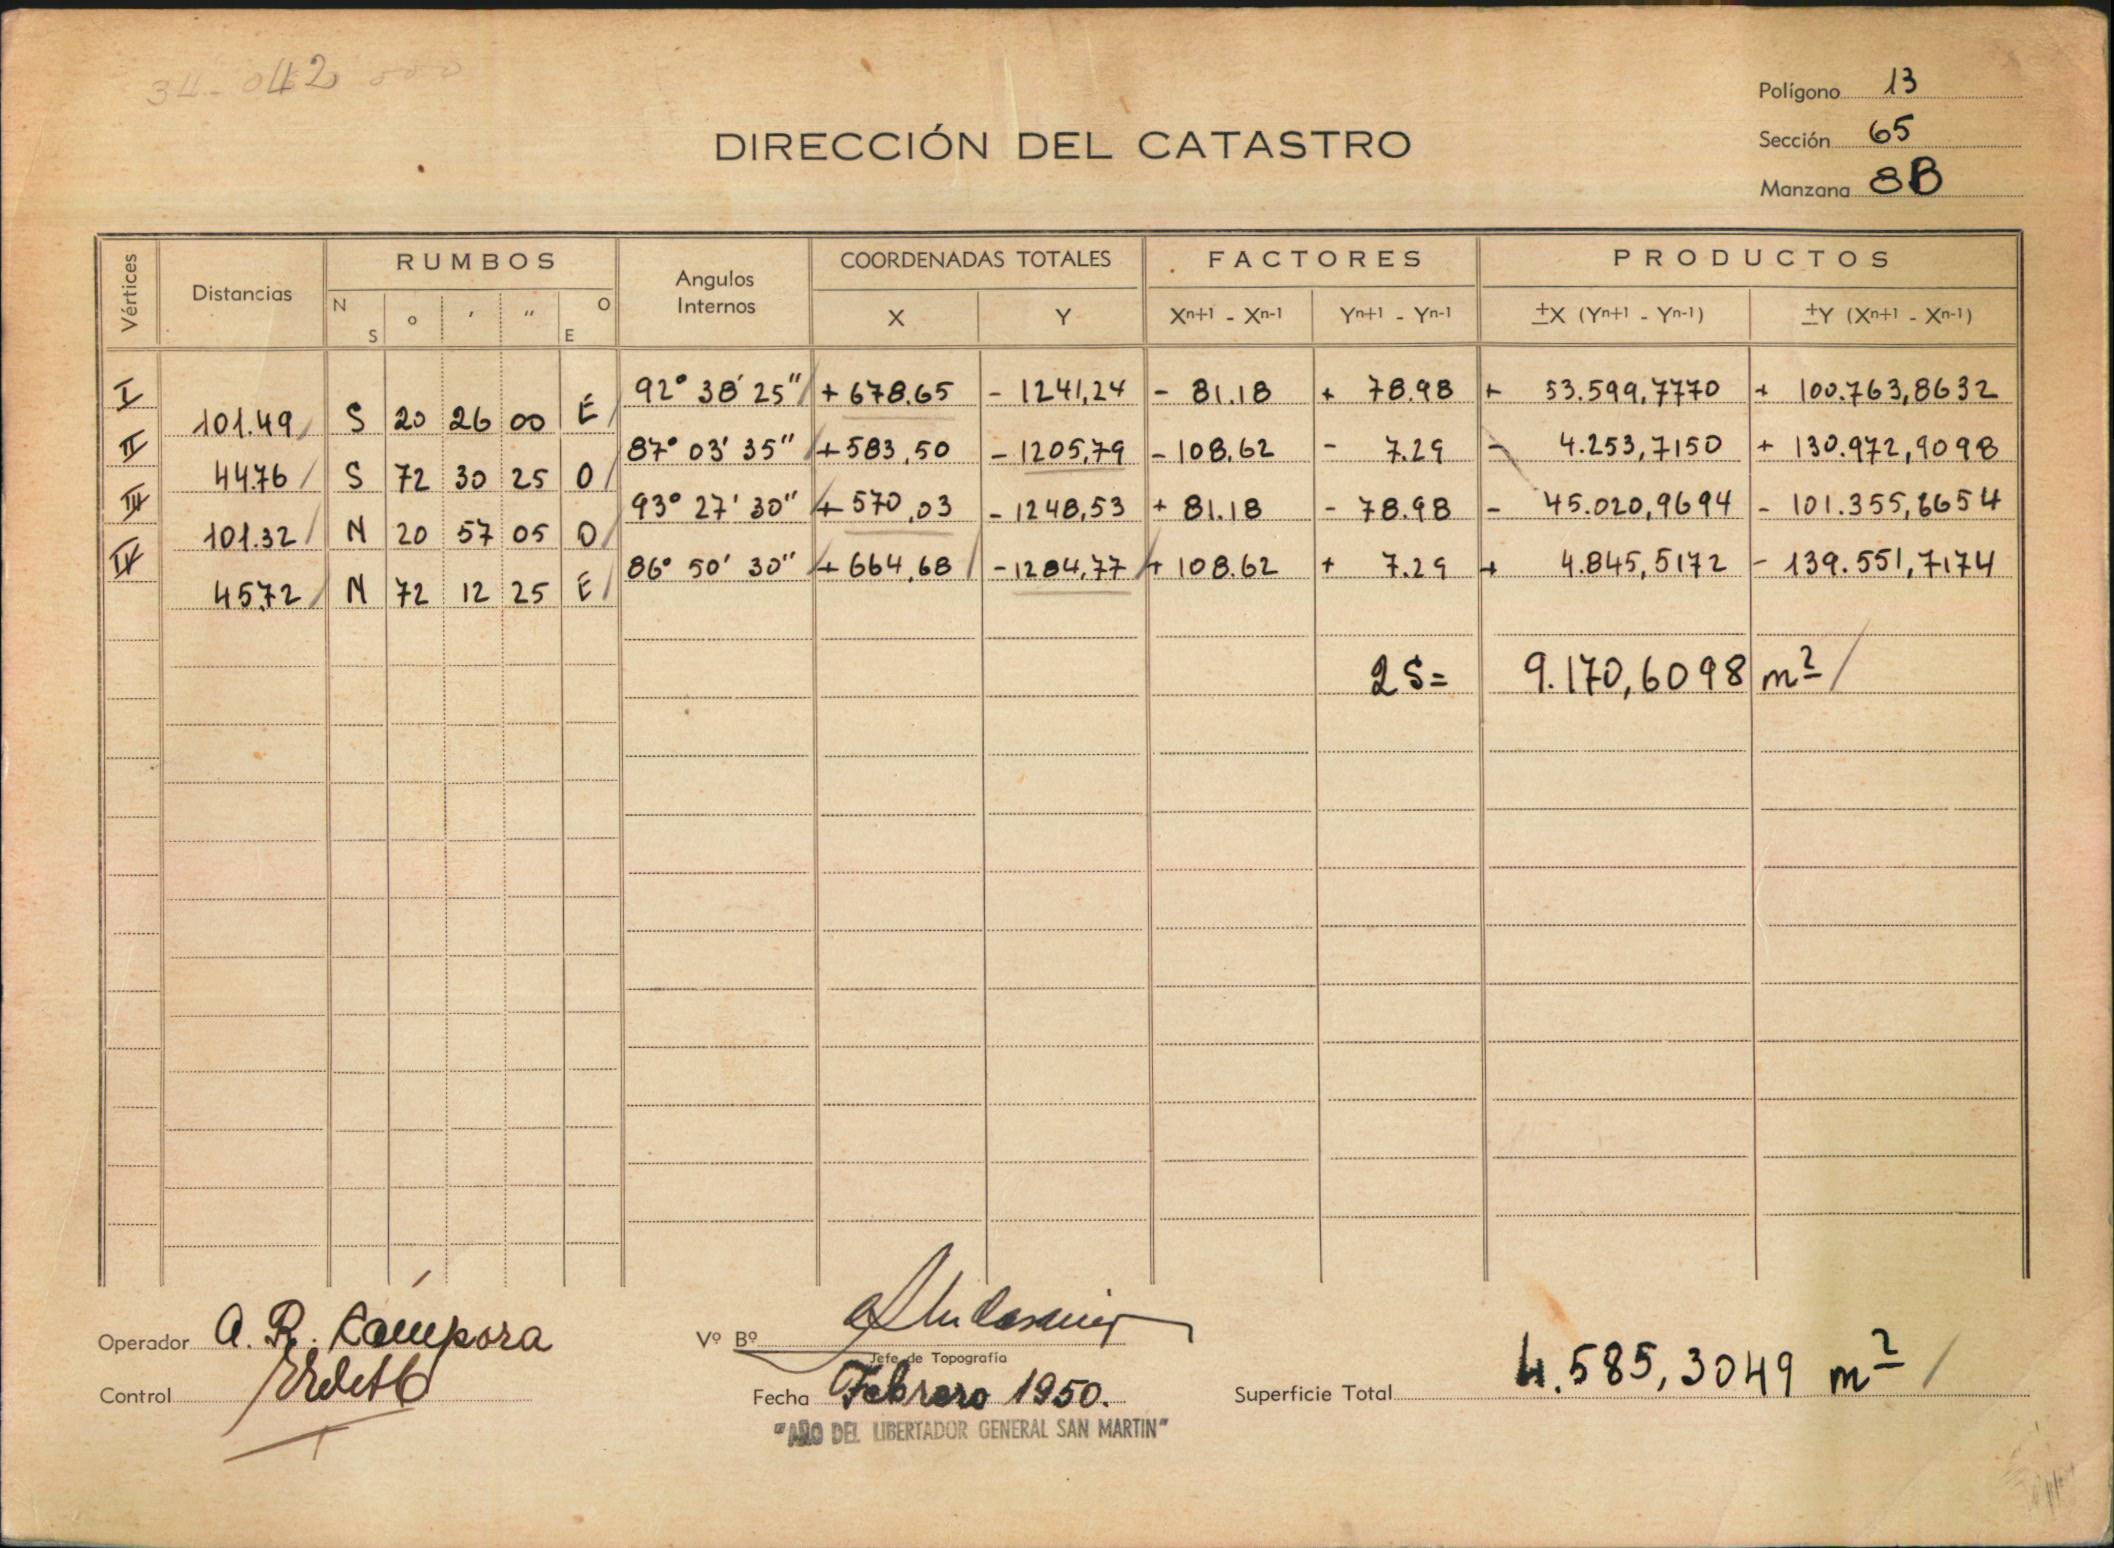 34-042 000
Polígono 13
Sección 65
Manzana 8B
DIRECCIÓN DEL CATASTRO
Vértices Distancias RUMBOS Angulos Internos COORDENADAS TOTALES FACTORES PRODUCTOS
N S o ' " O E X Y Xn+1 - Xn-1 Yn+1 - Yn-1 ±X (Yn+1 - Yn-1) ±Y (Xn+1 - Xn-1)
I 92° 38' 25" + 678.65 - 1241,24 - 81.18 + 78.98 + 53.599,7770 + 100.763,8632
101.49 S 20 26 00 E
II 87° 03' 35" + 583,50 - 1205,79 - 108.62 - 7.29 - 4.253,7150 + 130.972,9098
44.76 S 72 30 25 O
III 93° 27' 30" + 570,03 - 1248,53 + 81.18 - 78.98 - 45.020,9694 - 101.355,6654
101.32 N 20 57 05 O
IV 86° 50' 30" + 664,68 - 1284,77 + 108.62 + 7.29 + 4.845,5172 - 139.551,7174
45.72 N 72 12 25 E
2S= 9.170,6098 m²
Operador A. R. Cámpora
Vº Bº
Jefe de Topografía
Control
Fecha Febrero 1950.
Superficie Total 4.585,3049 m²
"AÑO DEL LIBERTADOR GENERAL SAN MARTIN"